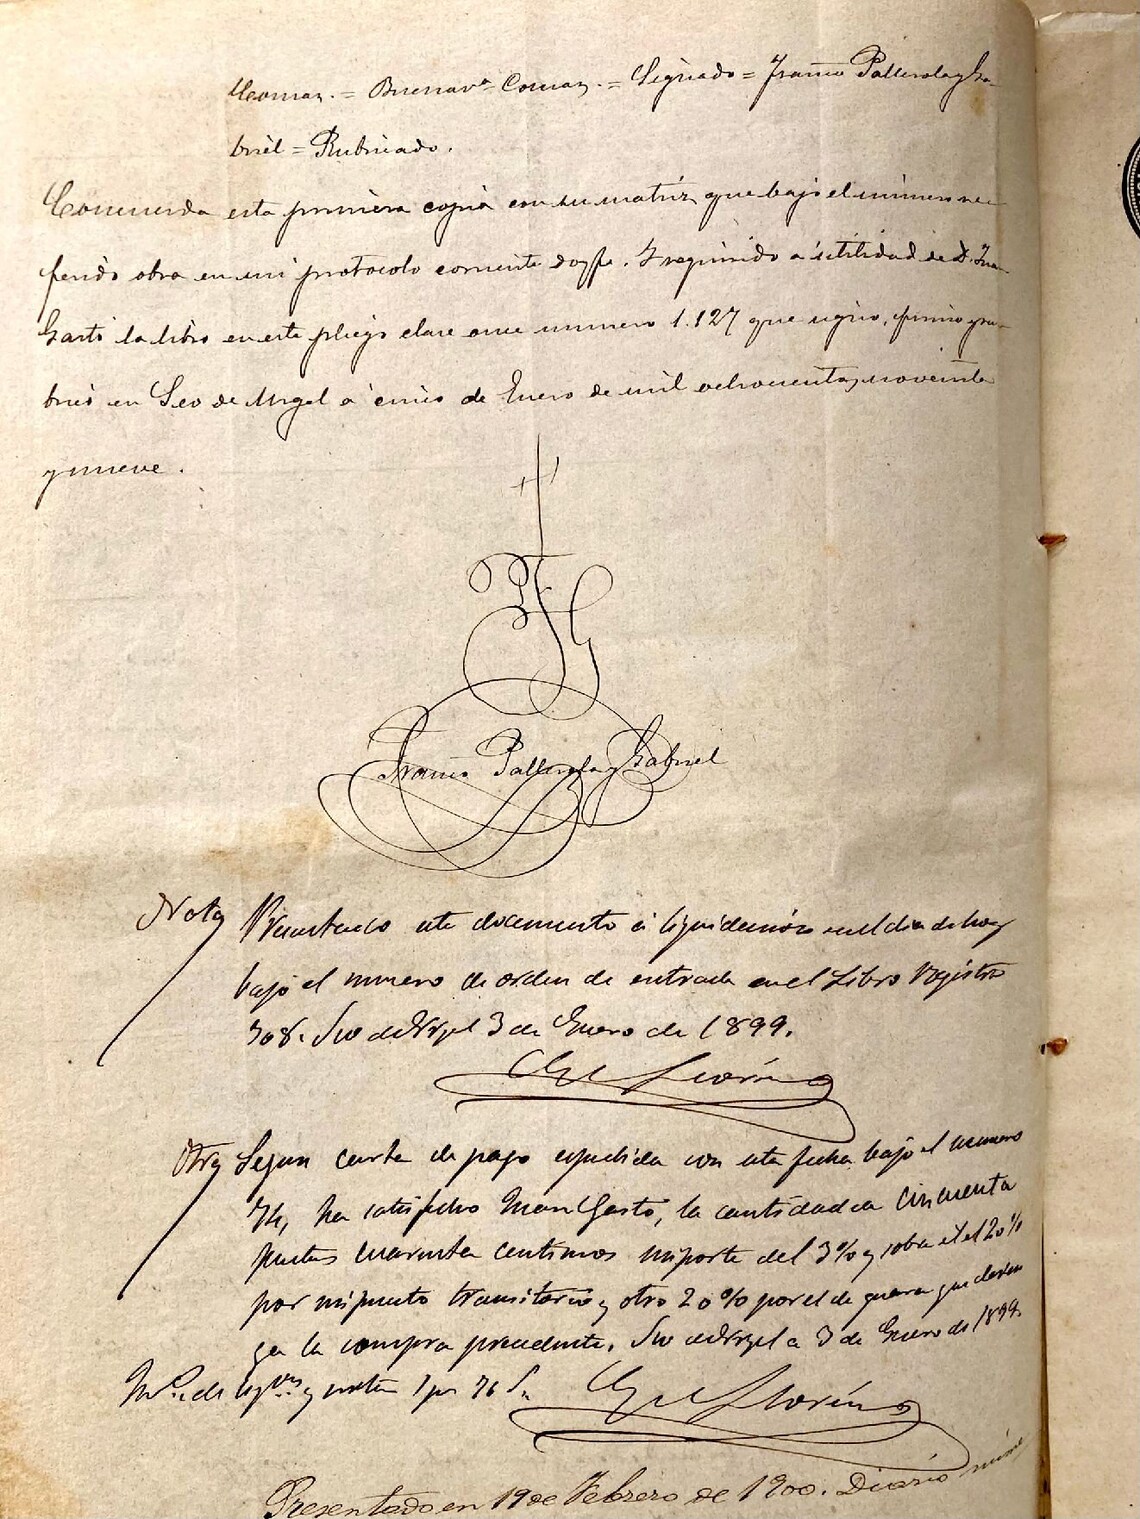 Comas. = Buenavª Comas. = Signado = Franco Pallerola y Ga-
briel = Rubricado.
Concuerda esta primera copia con su matriz que bajo el número re-
ferido obra en mi protocolo corriente doy fe. Y requirido a utilidad de D. Juan
Gasto la libro en este pliego clase once numero 1.127 que signo, firmo y ru-
brico en Seo de Urgel a cinco de Enero de mil ochocientos noventa
y nueve.
PG
Franco Pallerola y Gabriel
Nota Presentado este documento á liquidación en el dia de hoy
bajo el numero de orden de entrada en el Libro Registro
308. Seo de Urgel 3 de Enero de 1899.
Llorín
Otra Segun carta de pago expedida con esta fecha bajo el numero
74, ha satisfecho Juan Gasto, la cantidad de cincuenta
pesetas cuarenta centimos importe del 3% y sobre el el 20%
por impuesto transitorio y otro 20% por el de guerra que deven
ga la compra precedente. Seo de Urgel a 3 de Enero de 1899.
y nota
Llorín
Presentado en 19 de Febrero de 1900. Diario núm